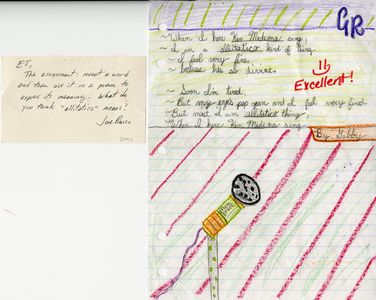 EJ,
The assignment: invent a word
and then use it in a poem to
express its meaning. What do
you think "allitatico" means?
Joe
GR
~When I here Ken Medema sing,
~I am a allitatico kind of thing.
~I feel very fine,
~because hes so divine.
Excellent!
~Soon I'm tired
~But may eyes pop open and I feel very fired
~But most I am allitatico thing,
~When I here Ken Medema sing.
By: Gibby